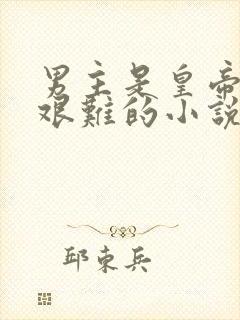 男主是皇帝
艱難的小說
邱束兵